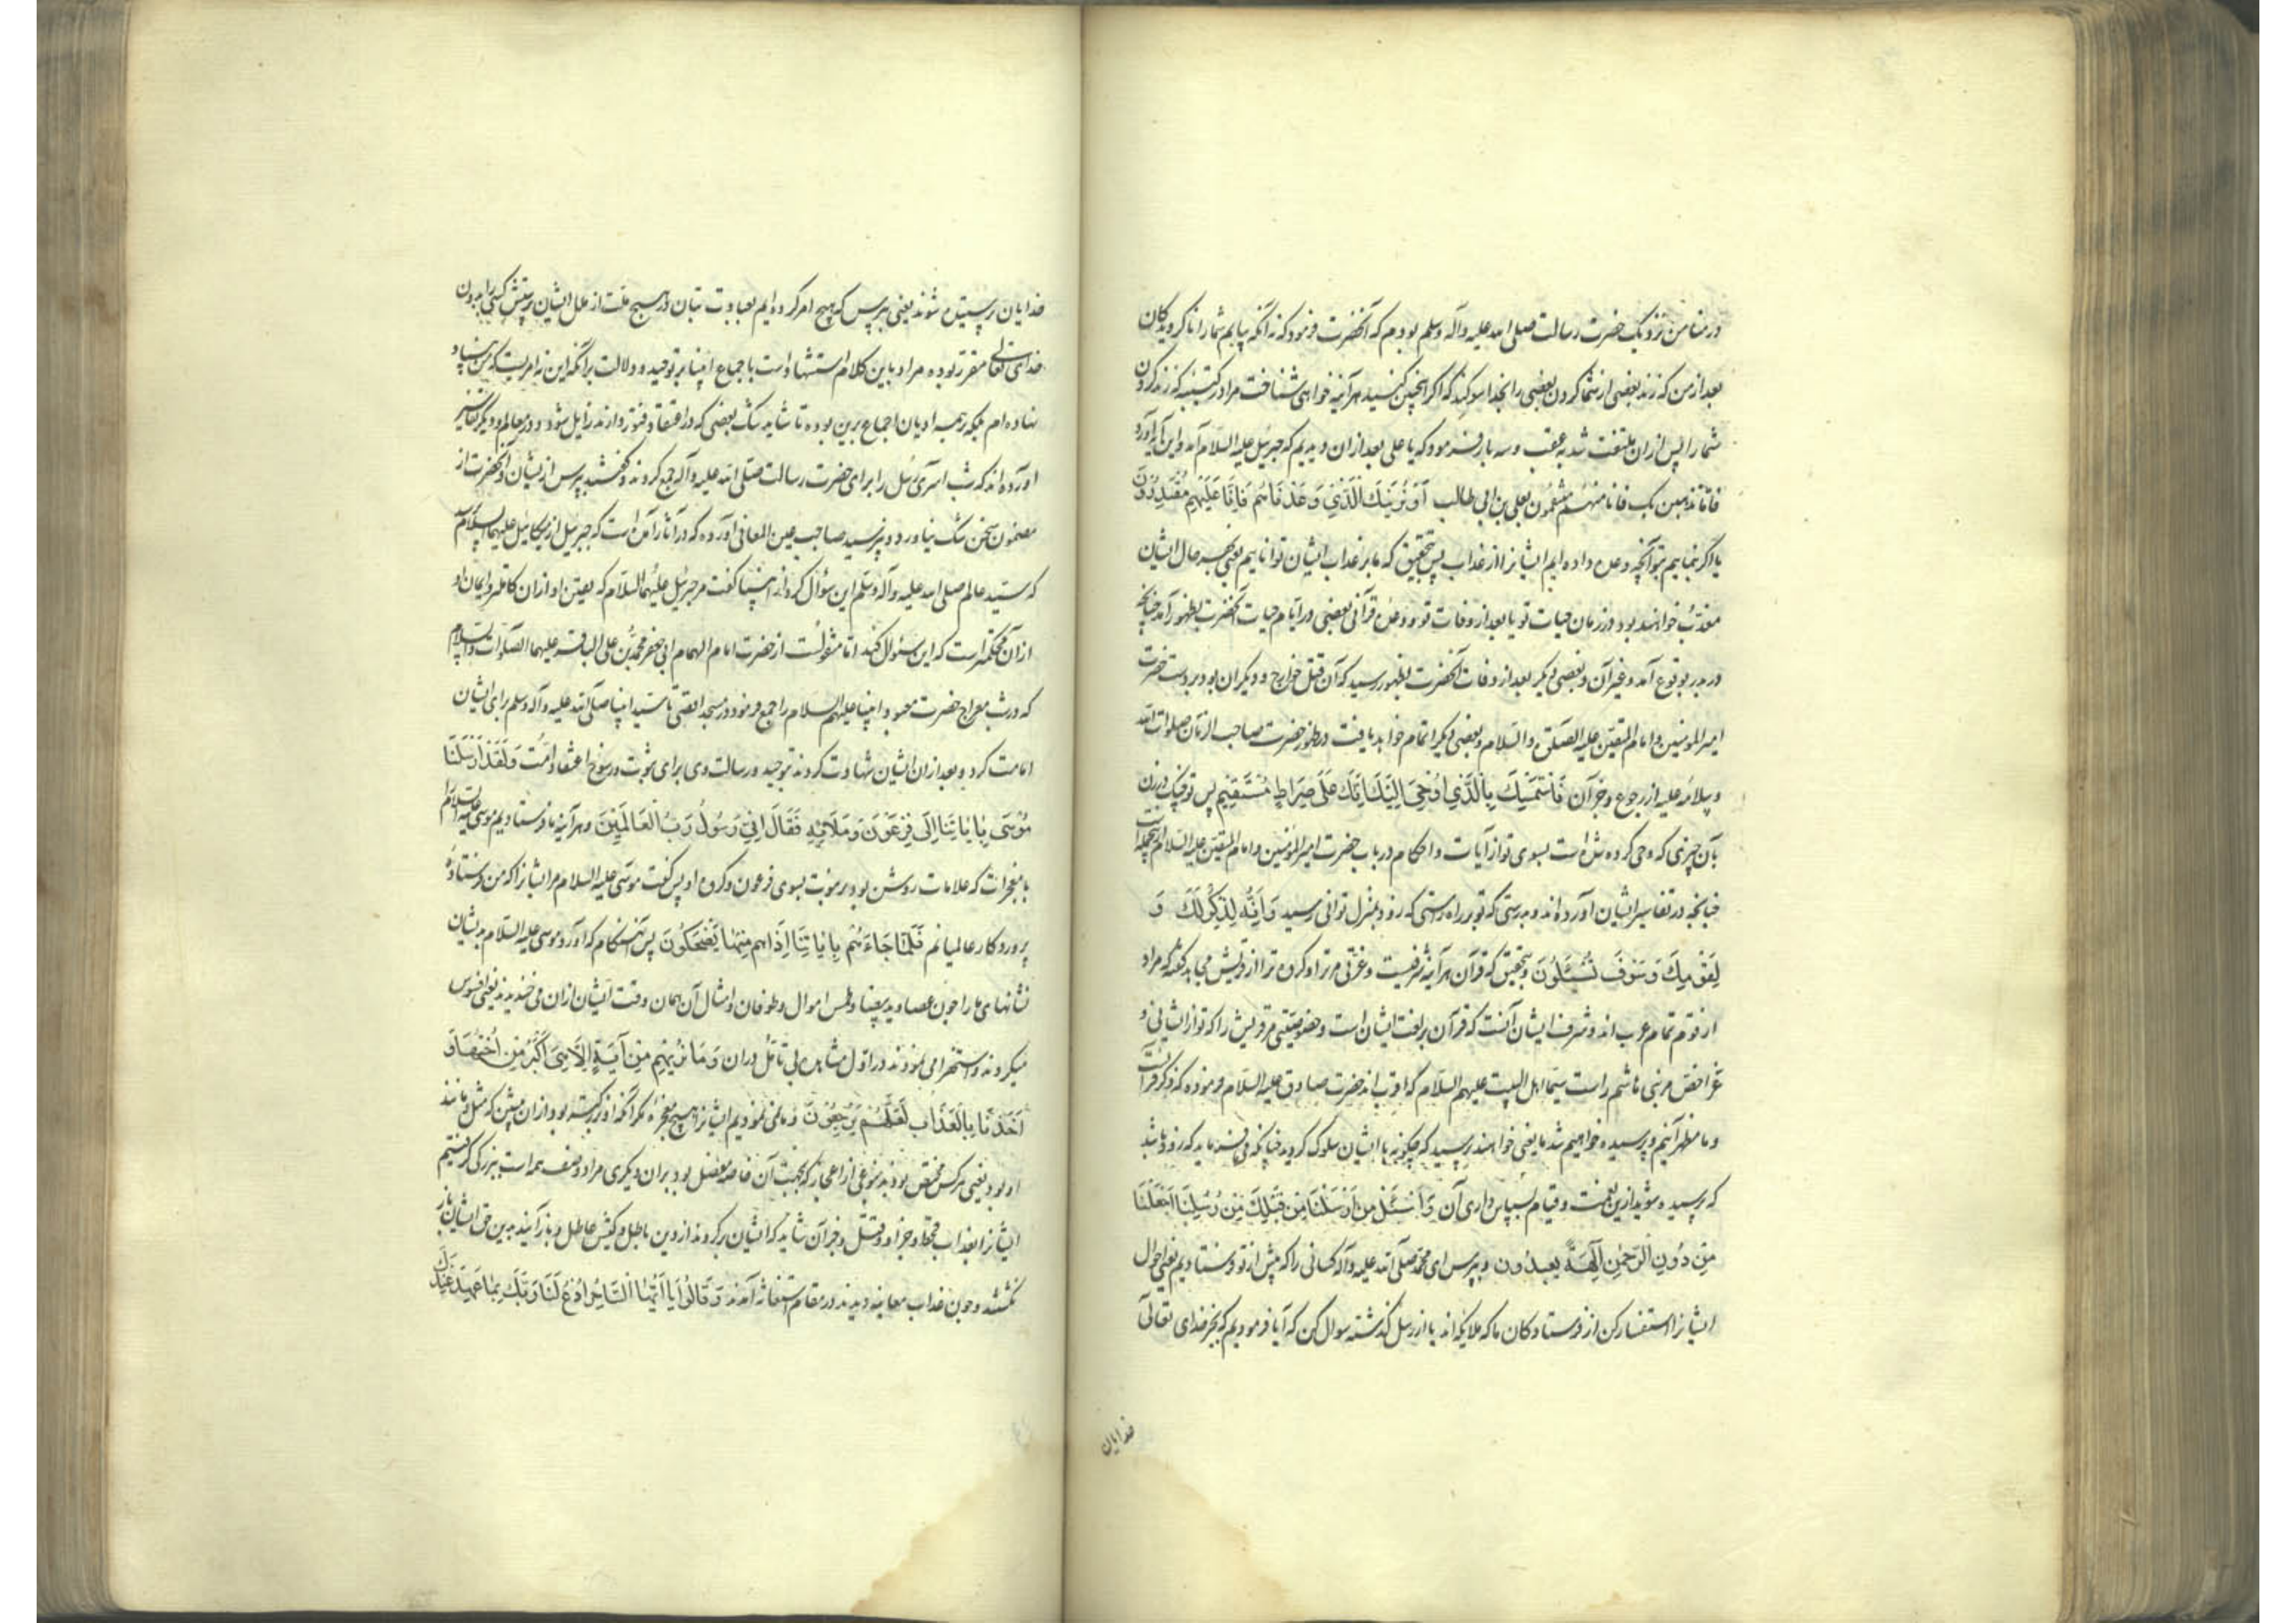 در منا من نزدیک حضرت رسالت صلی الله علیه وآله وسلم بودم که آنحضرت فرمود که نه آنکه بیابم شما را ناگرویدکان
بعد از من که زنند بعضی از شما گردن بعضی را بخدا سوکند که اگر اینچنین کنید هر آینه خواهی شناخت مرا در کتیبه که زند گردن
شما را پس از ان ملتفت شد به عقب و سه بار فرمود که یا علی بعد از ان دیدیم که جبرئیل علیه السلام آمد و این آیه آورد
فاما نذهبن بک فانا منهم منتقمون بعلی بن ابی طالب أَوْ نُرِیَنَّكَ الَّذِی وَعَدْنَاهُمْ فَإِنَّا عَلَیْهِمْ مُقْتَدِرُونَ
یا اگر بنماییم بتو آنچه وعده داده ایم ایشانرا از عذاب پس بتحقیق که ما بر عذاب ایشان تواناییم یعنی بهر حال ایشان
معذب خواهند بود در زمان حیات تو یا بعد از وفات تو و وعده قرآنی بعضی در ایام حیات آنحضرت بظهور آمد چنانچه
در بدر بوقوع آمد و غیر آن و بعضی دیگر بعد از وفات آنحضرت بظهور رسید که آن قتل خوارج و دیگران بود بر دست حضرت
امیر المومنین و امام المتقین علیه الصلوة والسلام و بعضی دیگر اتمام خواهد یافت در ظهور حضرت صاحب الزمان صلوات الله
وسلامه علیه از رجوع و جز آن فَاسْتَمْسِكْ بِالَّذِی أُوحِیَ إِلَیْكَ إِنَّكَ عَلَی صِرَاطٍ مُسْتَقِیمٍ پس تو چنک در زن
بآن چیزی که وحی کرده شده است بسوی تو از آیات و احکام در باب حضرت امیر المؤمنین و امام المتقین علیه السلام
چنانچه در تفاسیر ایشان آورده اند و بدرستی که تو بر راه راستی که زود بمنزل توانی رسید وَإِنَّهُ لَذِكْرٌ لَكَ وَ
لِقَوْمِكَ وَسَوْفَ تُسْئَلُونَ و بتحقیق که قرآن هر آینه شرفیست و عزتی مر ترا و گروه ترا از قریش مجاهد گفته که مراد
از قوم تمام عرب اند و شرف ایشان آنست که قرآن بر لغت ایشان است و خصوصیتی مر قریش را که تو از ایشانی و
عز اخص مر بنی هاشم راست سیما اهل البیت علیهم السلام که اقرب اند حضرت صادق علیه السلام فرموده که ذکر قرآنست
و ما مظهر آنیم و پرسیده خواهیم شد ما یعنی خواهند پرسید که چگونه با ایشان سلوک کردید چنانکه می فرماید که زود باشد
که پرسیده شوید از این نعمت و قیام بسپاس داری آن وَاسْئَلْ مَنْ أَرْسَلْنَا مِنْ قَبْلِكَ مِنْ رُسُلِنَا أَجَعَلْنَا
مِنْ دُونِ الرَّحْمٰنِ آلِهَةً یُعْبَدُونَ و بپرس ای محمد صلی الله علیه وآله کسانی را که پیش از تو فرستادیم یعنی احوال
ایشانرا استفسار کن از فرستادکان ما که ملائکه اند یا از رسل گذشته سوال کن که آیا فرمودیم که بجز خدای تعالی
خدایان
خدایان پرستیده شوند یعنی بپرس که هیچ امر کرده ایم بعبادت بتان و در هیچ ملت از ملل ایشان پرستش کسی را بدون
خدای تعالی مقرر بوده مراد باین کلام استشهاد است باجماع انبیا بر توحید و دلالت بر آنکه این نه امریست که من بنیاد
نهاده ام بلکه همه ادیان اجماع برین بوده تا شاید شک بعضی که در اعتقاد فتور دارند زایل شود و در معالم و دیگر تفاسیر
آورده اند که شب اسری رسل را برای حضرت رسالت صلی الله علیه وآله جمع کردند و گفتند بپرس از ایشان و آنحضرت از
مضمون سخن شک نیاورد و نپرسید صاحب عین المعانی آورده که در آثار آمده است که جبرئیل از میکائیل علیهما السلام پرسید
که سید عالم صلی الله علیه وآله وسلم این سؤال کرد از انبیا گفت مر جبرئیل علیهما السلام که یقین او از ان کاملتر و ایمان او
از آن محکمتر است که این سؤال کند اما منقولست از حضرت امام الهمام ابی جعفر محمد بن علی الباقر علیهما الصلوات والسلام
که در شب معراج حضرت معبود انبیا علیهم السلام را جمع فرمود در مسجد اقصی تا سید انبیا صلی الله علیه وآله وسلم برای ایشان
امامت کرد و بعد از ان ایشان شهادت کردند بتوحید و رسالت وی برای ثبوت و رسوخ اعتقاد امت وَلَقَدْ أَرْسَلْنَا
مُوسَی بِآیَاتِنَا إِلَی فِرْعَوْنَ وَمَلَائِهِ فَقَالَ إِنِّی رَسُولُ رَبِّ الْعَالَمِینَ و هر آینه ما فرستادیم موسی علیه السلام
با معجزات که علامات روشن بود بر نبوت بسوی فرعون و گروه او پس گفت موسی علیه السلام مر ایشانرا که من فرستاده
پروردکار عالمیانم فَلَمَّا جَاءَهُمْ بِآیَاتِنَا إِذَا هُمْ مِنْهَا یَضْحَكُونَ پس آن هنکام که آورد موسی علیه السلام بدیشان
نشانهای ما را چون عصا و ید بیضا و طمس اموال و طوفان و امثال آن همان وقت ایشان از ان می خندیدند یعنی افسوس
میکردند و استهزا می نمودند در اول مشاهده بی تأمل در ان وَمَا نُرِیهِمْ مِنْ آیَةٍ إِلَّا هِیَ أَكْبَرُ مِنْ أُخْتِهَا وَ
أَخَذْنَاهُمْ بِالْعَذَابِ لَعَلَّهُمْ یَرْجِعُونَ و ما نمی نمودیم ایشانرا هیچ معجزه مگر آنکه او بزرگتر بود از ان پیشین که مثل و مانند
او بود یعنی هر کس مختص بود بنوعی از اعجاز که بجهت آن خاصه مفضل بود بر ان دیگری مراد وصف همه است ببزرگی و گرفتیم
ایشانرا بعذاب قحط و جراد و قمل و جز آن شاید که ایشان برکردند از دین باطل و کیش عاطل و باز آیند بدین حق ایشان باز
نگشتند و چون عذاب معاینه دیدند در مقام استغاثه آمدند وَقَالُوا یَا أَیُّهَا السَّاحِرُ ادْعُ لَنَا رَبَّكَ بِمَا عَهِدَ عِنْدَكَ